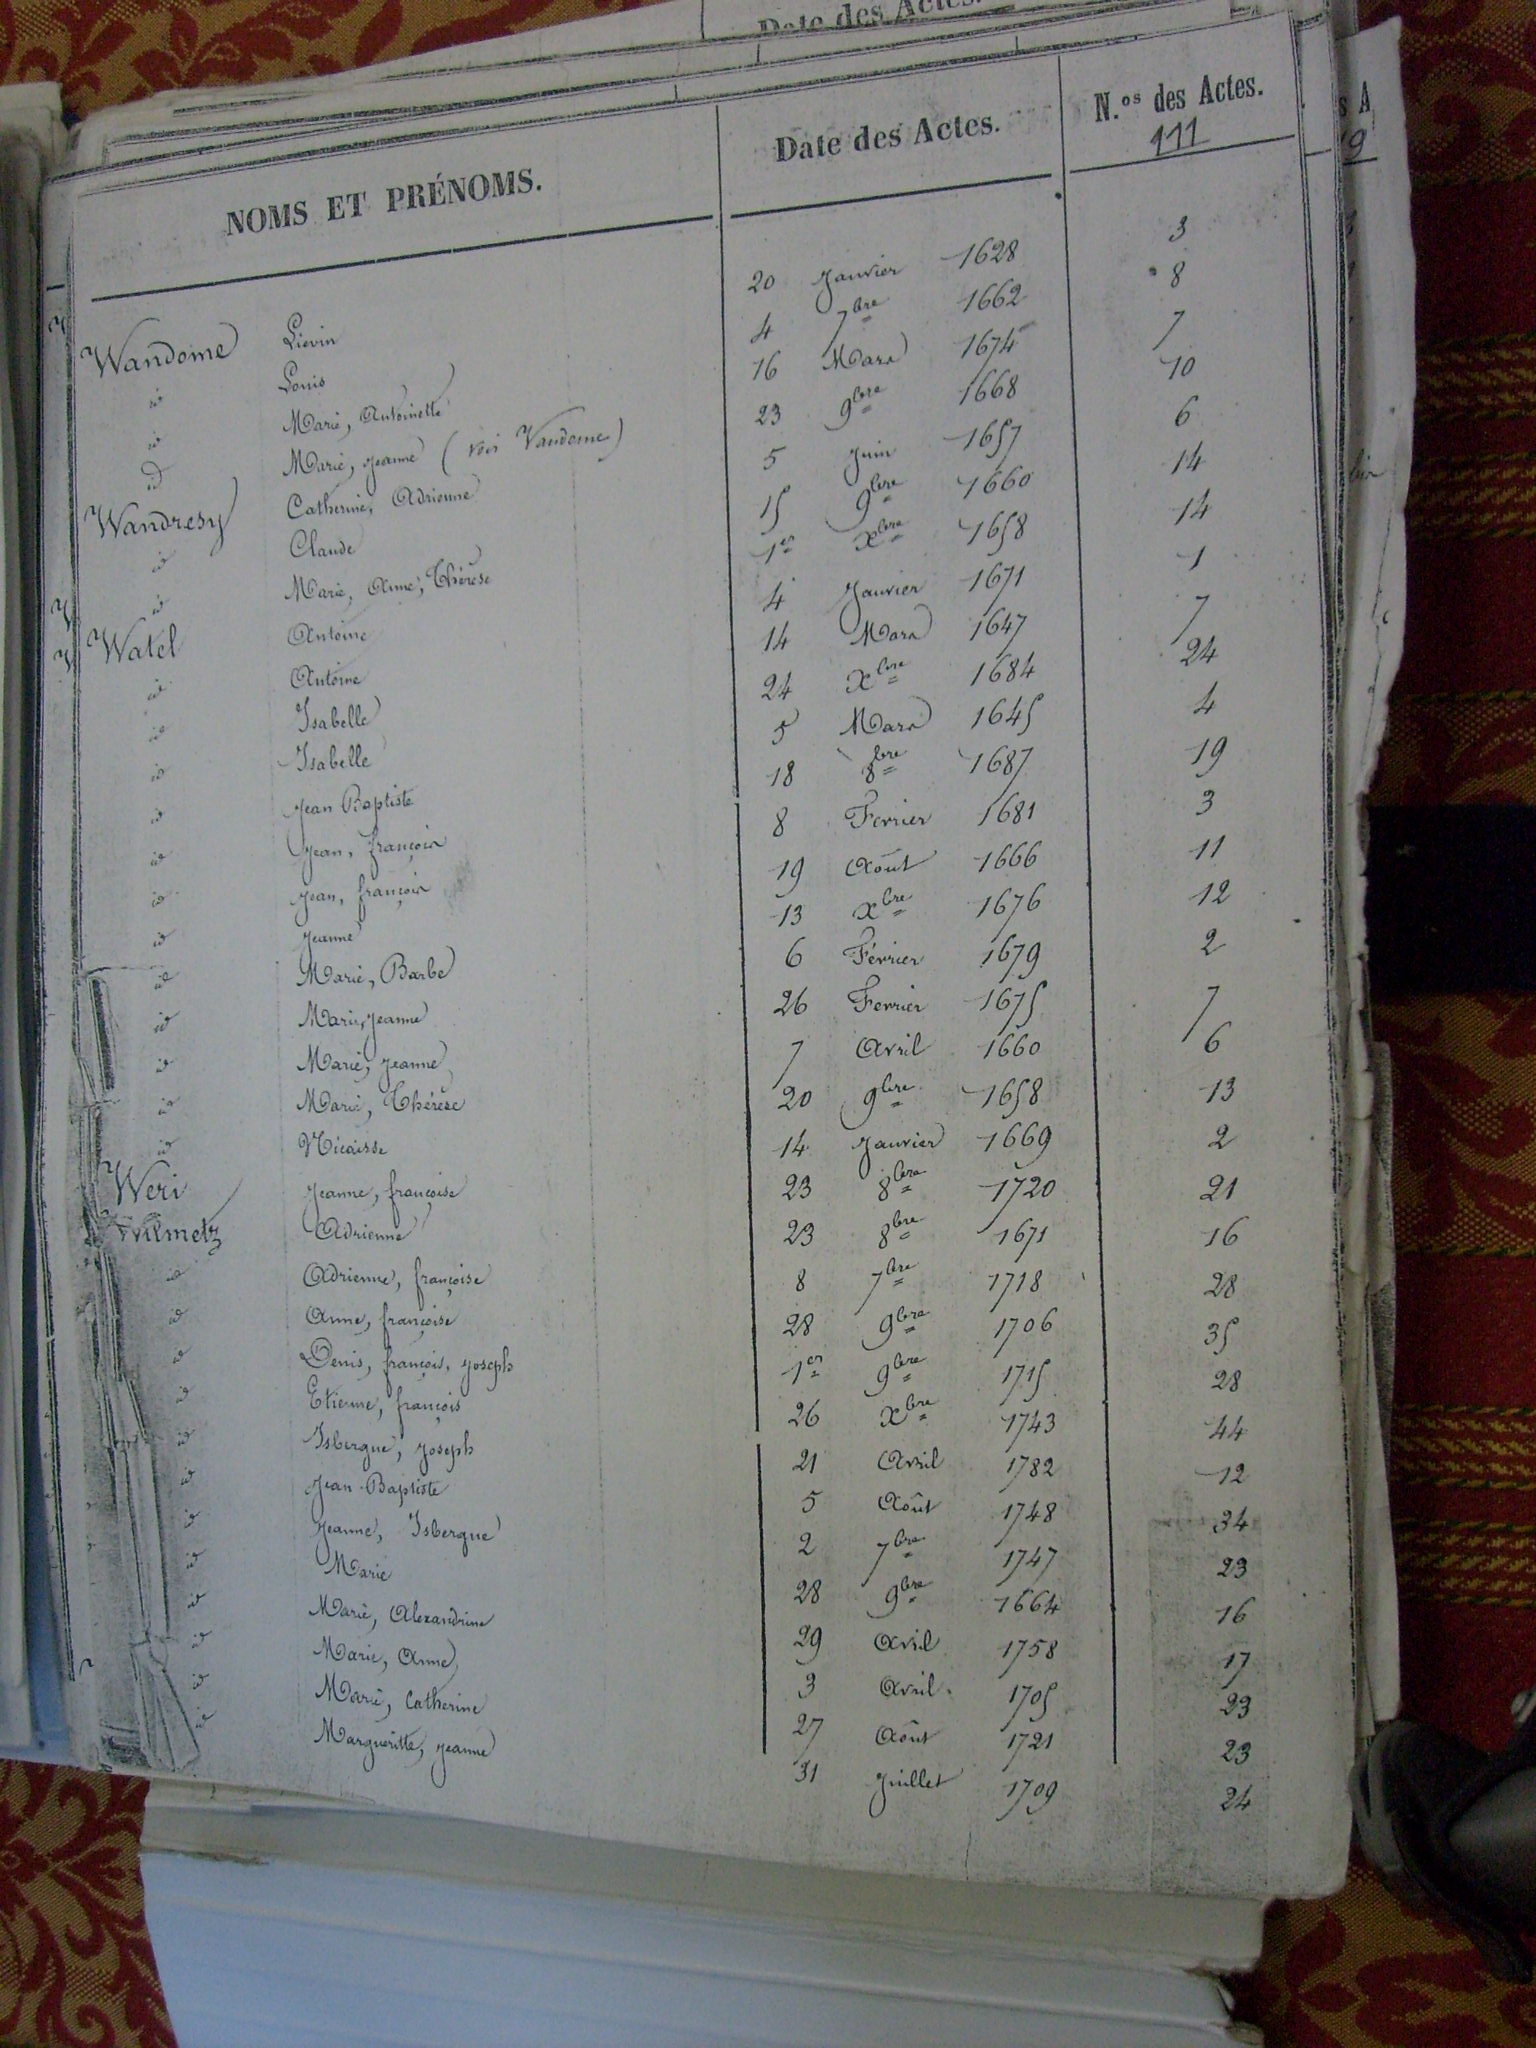 Date des Actes.
NOMS ET PRÉNOMS. Date des Actes. N.os des Actes.
111
Wandome Liévin 20 Janvier 1628 3
id Louis 4 7bre 1662 8
id Marie, Antoinette 16 Mars 1674 7
id Marie, Jeanne (voir Vandome) 23 9bre 1668 10
Wandresy Catherine, Adrienne 5 Juin 1657 6
id Claude 15 9bre 1660 14
id Marie, Anne, Thérèse 1er Xbre 1658 14
Watel Antoine 4 Janvier 1671 1
id Antoine 14 Mars 1647 7
id Isabelle 24 Xbre 1684 24
id Isabelle 5 Mars 1645 4
id Jean Baptiste 18 8bre 1687 19
id Jean, françois 8 Fevrier 1681 3
id Jean, françois 19 Août 1666 11
id Jeanne 13 Xbre 1676 12
id Marie, Barbe 6 Février 1679 2
id Marie, Jeanne 26 Fevrier 1675 7
id Marie, Jeanne 7 Avril 1660 6
id Marie, Thérèse 20 9bre 1658 13
id Nicaisse 14 Janvier 1669 2
Weri Jeanne, françoise 23 8bre 1720 21
Wilmetz Adrienne 23 8bre 1671 16
id Adrienne, françoise 8 7bre 1718 28
id Anne, françoise 28 9bre 1706 35
id Denis, françois, Joseph 1er 9bre 1715 28
id Etienne, françois 26 Xbre 1743 44
id Isbergue, Joseph 21 Avril 1782 12
id Jean Baptiste 5 Août 1748 34
id Jeanne, Isbergue 2 7bre 1747 23
id Marie 28 9bre 1664 16
id Marie, Alexandrine 29 Avril 1758 17
id Marie, Anne 3 Avril 1705 23
id Marie, Catherine 27 Août 1721 23
id Margueritte, Jeanne 31 Juillet 1709 24